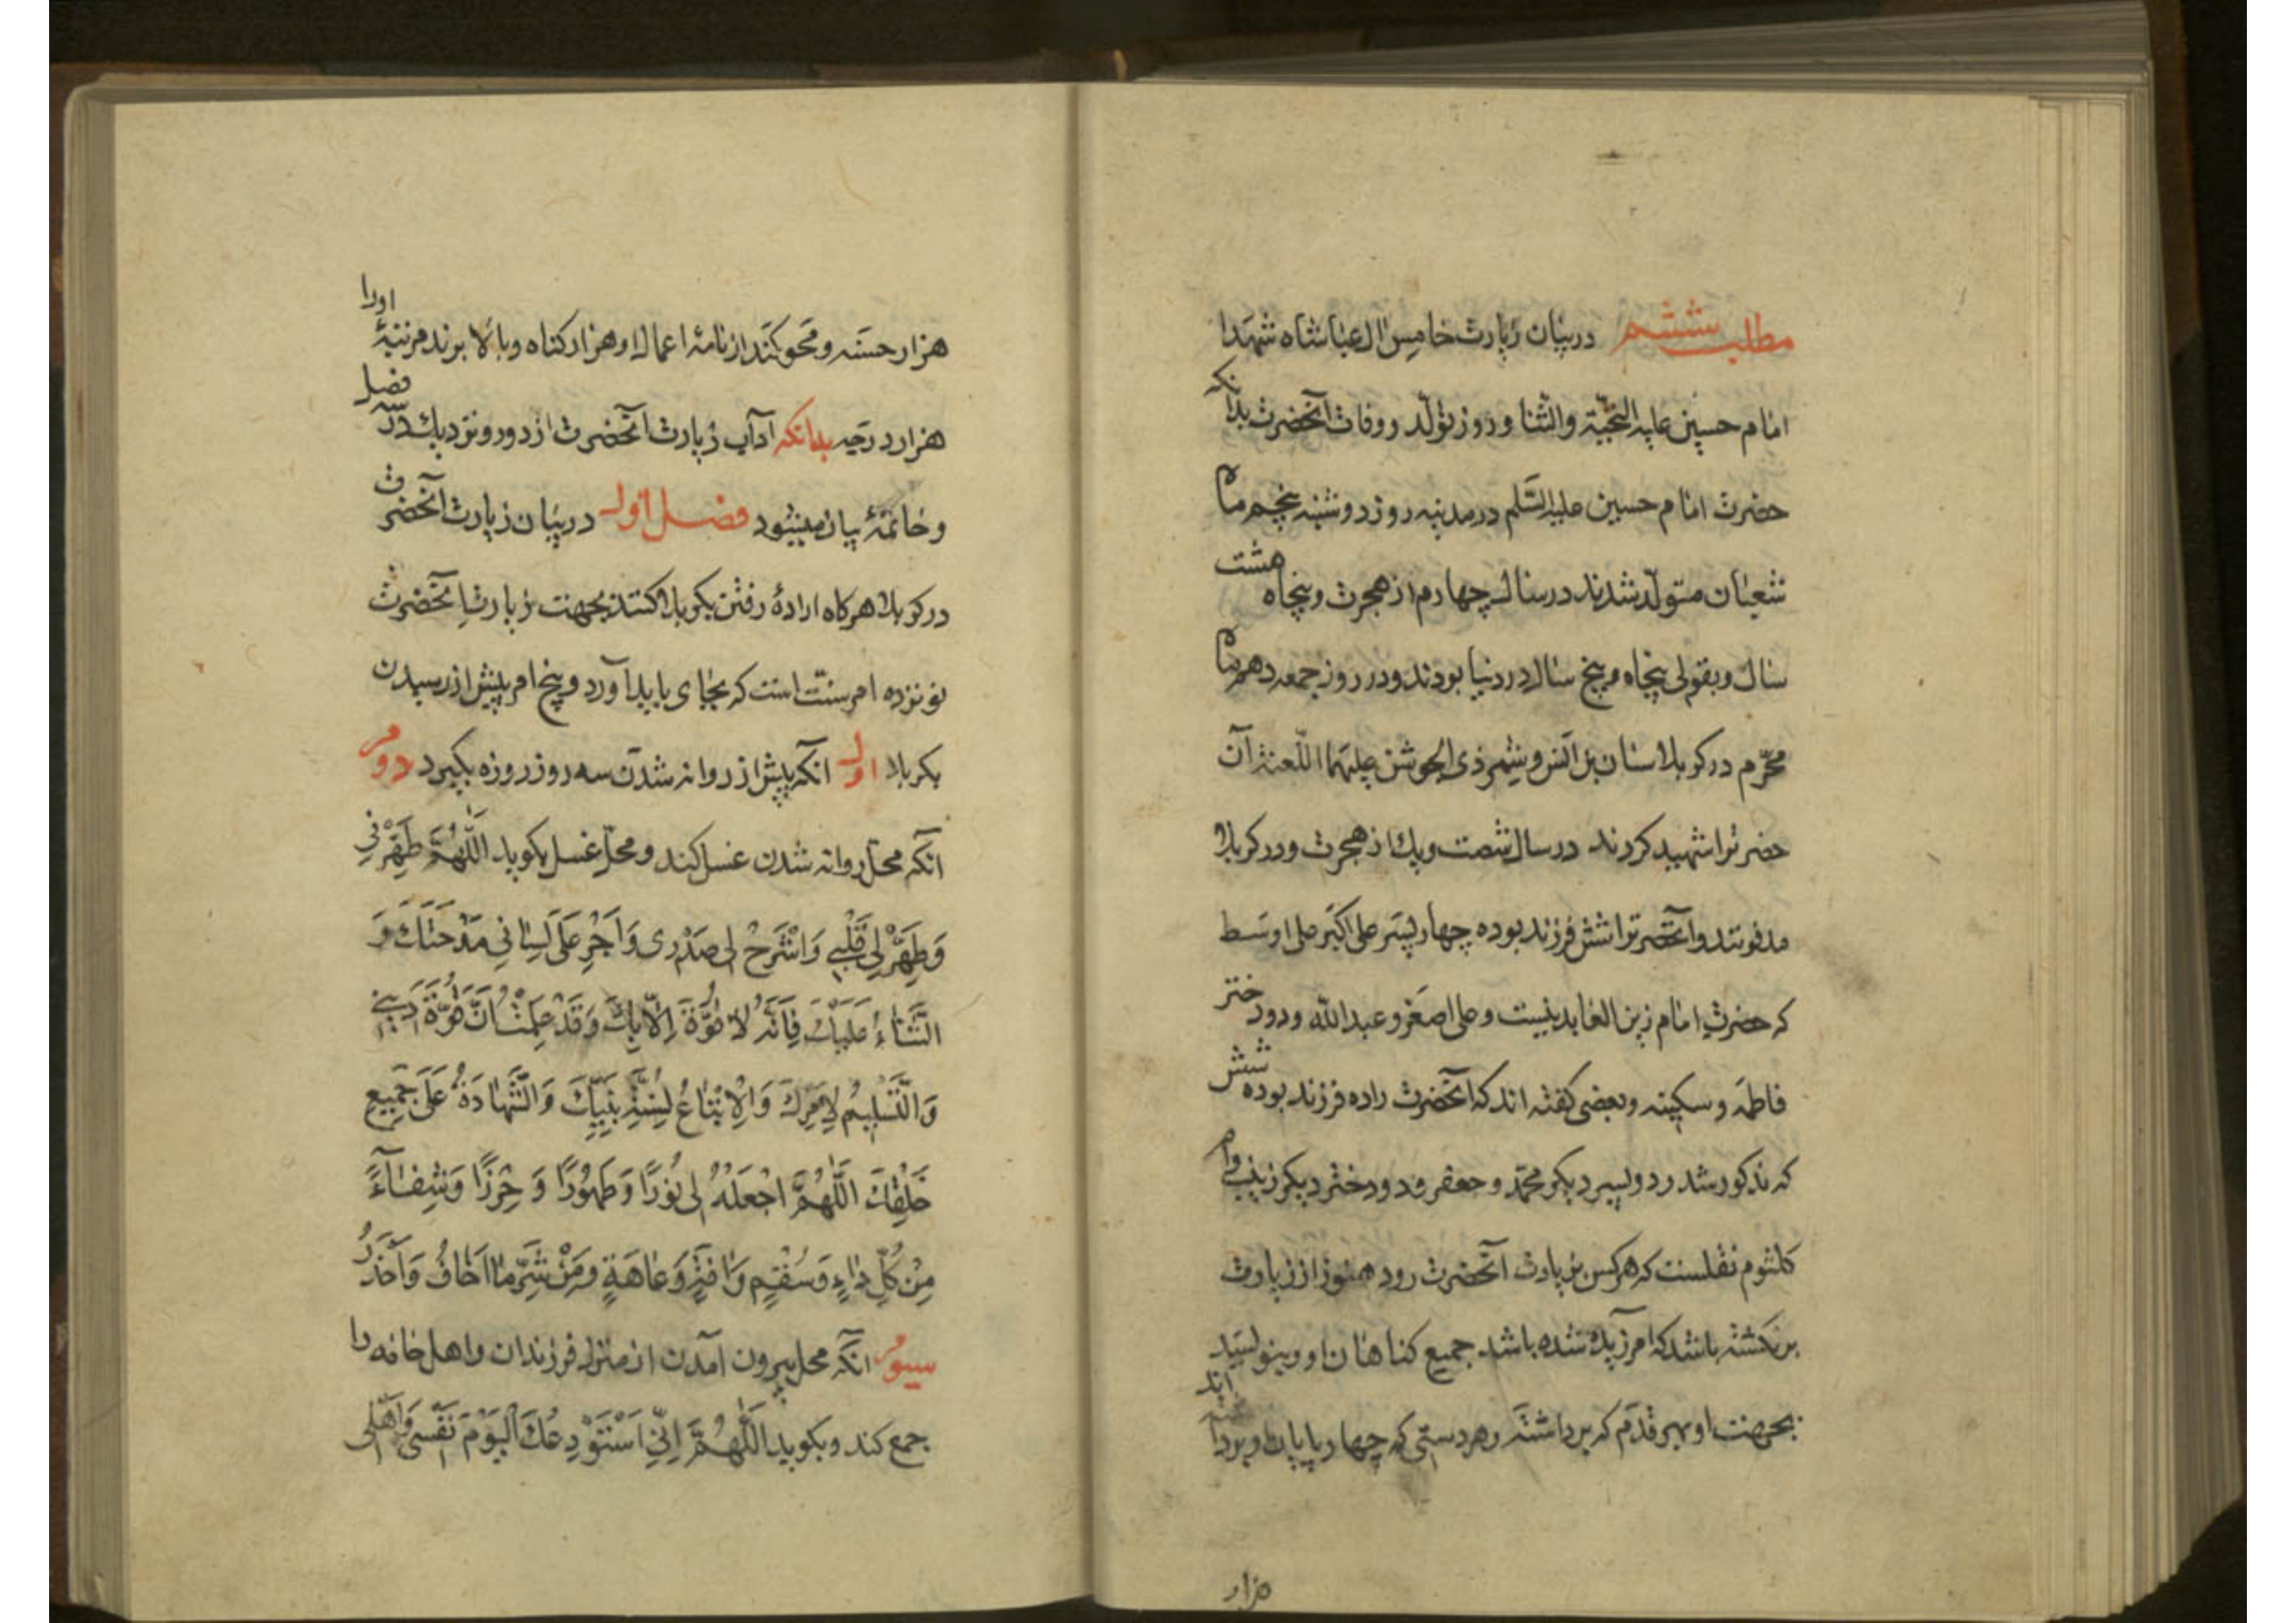 مطلب ششم در بیان زیارت خامس ال عبا شاه شهدا
امام حسین علیه التحیّة والثنا و روز تولّد و وفات آنحضرت بدانکه
حضرت امام حسین علیه السّلم در مدینه روز دوشنبه پنجم ماه
شعبان متولّد شدند در سال چهارم از هجرت و پنجاه هشت
سال و بقولی پنجاه و پنج سال در دنیا بودند و در روز جمعه دهم ماه
محرّم در کربلا سنان بن انس و شمر ذی الجوشن علیهما اللّعنة آن
حضرترا شهید کردند در سال شصت و یك از هجرت و در کربلا
مدفونند و آنحضرترا شش فرزند بوده چهار پسر علی اکبر علی اوسط
که حضرت امام زین العابدینست و علی اصغر و عبدالله و دو دختر
فاطمه و سکینه و بعضی کفته اند که آنحضرت را ده فرزند بوده شش
که مذکور شد و دو پسر دیکر محمّد و جعفر و دو دختر دیکر زینب و ام
کلثوم نقلست که هر کس بزیارت آنحضرت رود هنوز از زیارت
برنکشته باشد که امرزیده شده باشد جمیع کناهان او و بنویسند
بجهت او بهر قدم که برداشته و هر دستی که چهارپایان او برداشته اند
هزار
هزار حسنه و محو کنند از نامهٔ اعمال او هزار کناه و بالا برند مرتبهٔ اورا
هزار درجه بدانکه آداب زیارت آنحضرت از دور و نزدیك در سه فصل
و خاتمهٔ بیان میشود فصل اول در بیان زیارت آنحضرت
در کربلا هرکاه ارادهٔ رفتن بکربلا کنند بجهت زیارت آنحضرت
نونزده امر سنّت است که بجای باید آورد و پنج امر پیش از رسیدن
بکربلا اول آنکه پیش از روانه شدن سه روز روزه بکیرد دوم
آنکه محل روانه شدن غسل کند و محلّ غسل بکوید اَللّٰهُمَّ طَهِّرْنِی
وَطَهِّرْ لِی قَلْبِی وَاشْرَحْ لِی صَدْرِی وَاَجْرِ عَلَی لِسٰانِی مِدْحَتَكَ وَ
الثَّنٰاءُ عَلَیْكَ فَاِنَّهُ لاٰ قُوَّةَ اِلّاٰ بِكَ وَقَدْ عَلِمْتُ اَنَّ قُوَّةَ دِینِی
وَالتَّسْلِیمُ لِاَمْرِكَ وَالْاِتِّبٰاعُ لِسُنَّةِ نَبِیِّكَ وَالشَّهٰادَةُ عَلَی جَمِیعِ
خَلْقِكَ اَللّٰهُمَّ اجْعَلْهُ لِی نُورًا وَطَهُورًا وَحِرْزًا وَشِفٰاءً
مِنْ كُلِّ دٰاءٍ وَسُقْمٍ وَاٰفَةٍ وَعٰاهَةٍ وَمِنْ شَرِّ مٰا اَخٰافُ وَاَحْذَرُ
سیوم آنکه محل بیرون آمدن از منزل فرزندان و اهل خانه را
جمع کند و بکوید اَللّٰهُمَّ اِنِّی اَسْتَوْدِعُكَ الْیَوْمَ نَفْسِی وَاَهْلِی